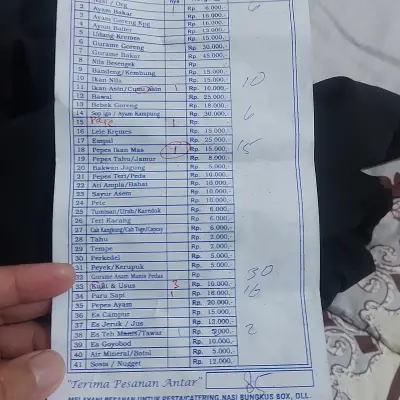 Nasi / Org 1 Rp. 6.000,- 6
2 Ayam Bakar Rp. 16.000,-
3 Ayam Goreng Kpg Rp. 16.000,-
4 Rp. 15.000,-
5 Udang Kremes Rp. 15.000,-
6 Gurame Goreng Rp. 30.000,-
7 Gurame Bakar Rp. 45.000,-
8 Nila Besengek Rp.
9 Bandeng/Kembung Rp. 15.000,-
10 Ikan Nila Rp. 15.000,-
11 Ikan Asin/Cumi Asin 1 Rp. 10.000,- 10
12 Bawal Rp. 25.000,-
13 Bebek Goreng Rp. 18.000,-
14 Sop Iga / Ayam Kampung Rp. 30.000,- 6
15 Pare 1 Rp.
16 Lele Kremes Rp. 15.000,-
17 Empal Rp. 25.000,-
18 Pepes Ikan Mas 1 Rp. 15.000,- 15
19 Pepes Tahu/Jamur Rp. 8.000,-
20 Bakwan Jagung Rp. 5.000,-
21 Pepes Teri/Peda Rp. 10.000,-
22 Ati Ampla/Babat Rp. 10.000,-
23 Sayur Asem Rp. 10.000,-
24 Pete Rp. 10.000,-
25 Tumisan/Urab/Karedok Rp. 6.000,-
26 Teri Kacang Rp. 6.000,-
27 Cah Kangkung/Cah Toge/Capcay Rp. 6.000,-
28 Tahu Rp. 2.000,-
29 Tempe Rp. 2.000,-
30 Perkedel Rp. 5.000,-
31 Peyek/Kerupuk Rp. 5.000,-
32 Gurame Asam Manis Pedas Rp. 30
33 Kulit & Usus 3 Rp. 10.000,-
34 Paru Sapi 1 Rp. 16.000,- 16
35 Pepes Ayam Rp. 20.000,-
36 Es Campur Rp. 15.000,-
37 Es Jeruk / Jus Rp. 12.000,-
38 Es Teh Manis/Tawar 1 Rp. 5.000,- 2
39 Es Goyobod Rp. 10.000,-
40 Air Mineral/Botol Rp. 5.000,-
41 Sosis / Nugget Rp. 12.000,-
"Terima Pesanan Antar" 85
MELAYANI PESANAN UNTUK PESTA/CATERING, NASI BUNGKUS BOX, DLL.